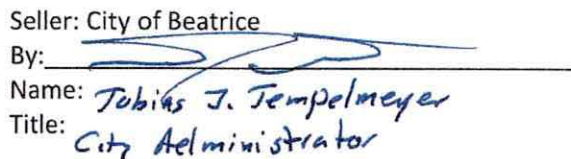 Seller: City of Beatrice
By:
Name: Tobias J. Tempelmeyer
Title: City Administrator